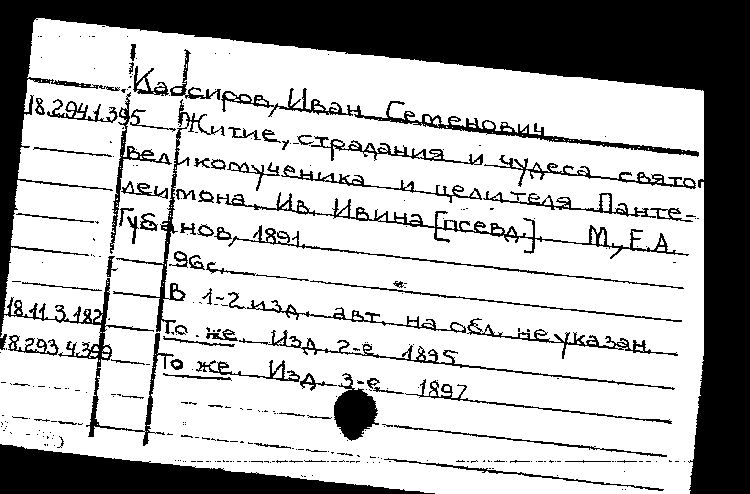 Кассиров, Иван Семенович
18.294.1.395 Житие, страдания и чудеса святог
великомученика и целителя Панте=
леимона. Ив. Ивина [псевд.]. М., Е.А.
Губанов, 1891.
96с.
В 1-2 изд. авт. на обл. не указан.
18.11.3.182 То же. Изд. 2-е 1895.
18.293.4.399 То же. Изд. 3-е 1897